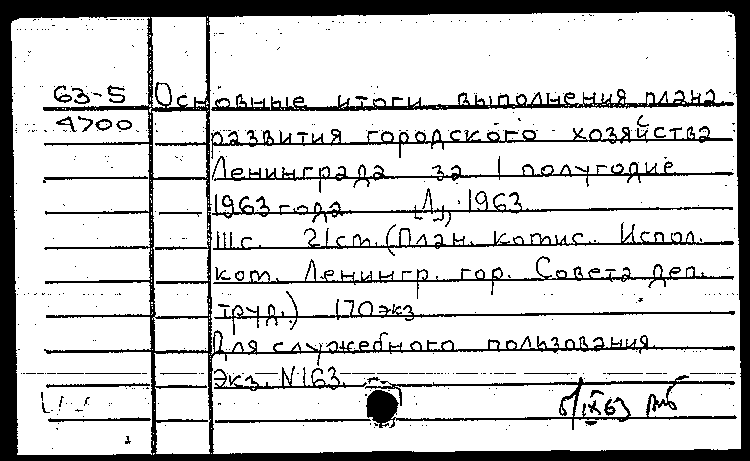 63-5 Основные итоги выполнения плана
4700 развития городского хозяйства
Ленинграда за 1 полугодие
1963 года [Л], 1963
111с. 21см. (План. комис. Испол.
ком. Ленингр. гор. Совета деп.
труд.) 170 экз
Для служебного пользования
Экз. N163.
5/IX63